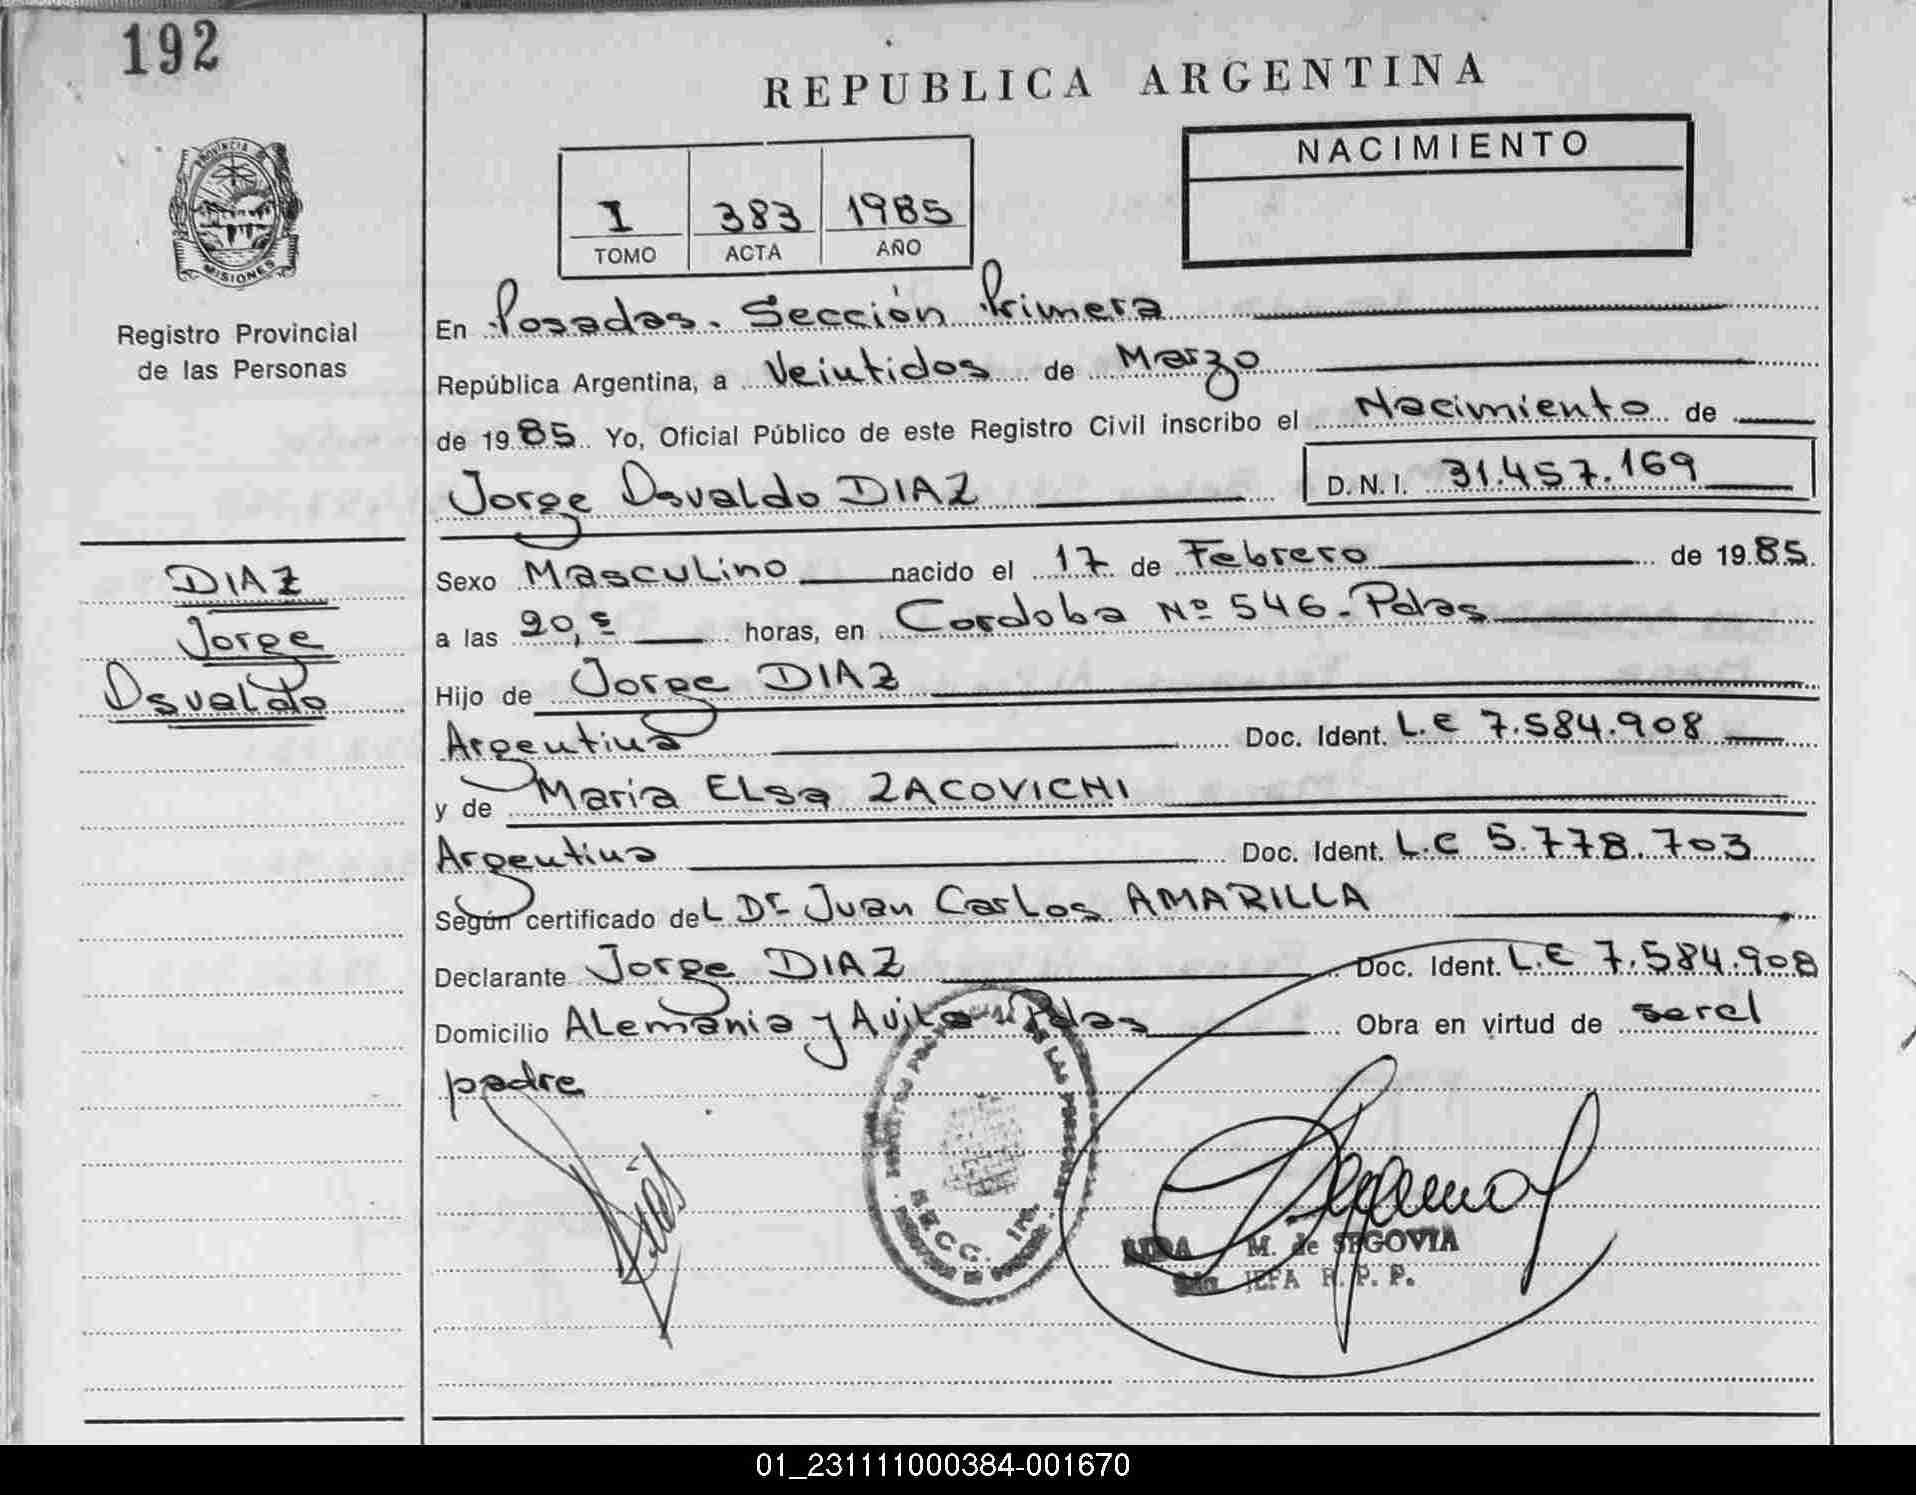 192
REPUBLICA ARGENTINA
PROVINCIA DE
MISIONES
Registro Provincial
de las Personas
I 383 1985
TOMO ACTA AÑO
NACIMIENTO
En Posadas. Sección Primera
República Argentina, a Veintidos de Marzo
de 1985 Yo, Oficial Público de este Registro Civil inscribo el Nacimiento de
Jorge Osvaldo DIAZ D.N.I. 31.457.169
DIAZ
Jorge
Osvaldo
Sexo Masculino nacido el 17 de Febrero de 1985.
a las 20,s horas, en Cordoba Nº 546-Pdas
Hijo de Jorge DIAZ
Argentina Doc. Ident. L.E 7.584.908
y de Maria ELsa ZACOVICHI
Argentina Doc. Ident. L.C 5.778.703
Según certificado deL Dr Juan Carlos AMARILLA
Declarante Jorge DIAZ Doc. Ident. L.E 7.584.908
Domicilio ALemania y Avila - Pdas Obra en virtud de ser el
padre
M. de SEGOVIA
JEFA R. P. P.
01_231111000384-001670